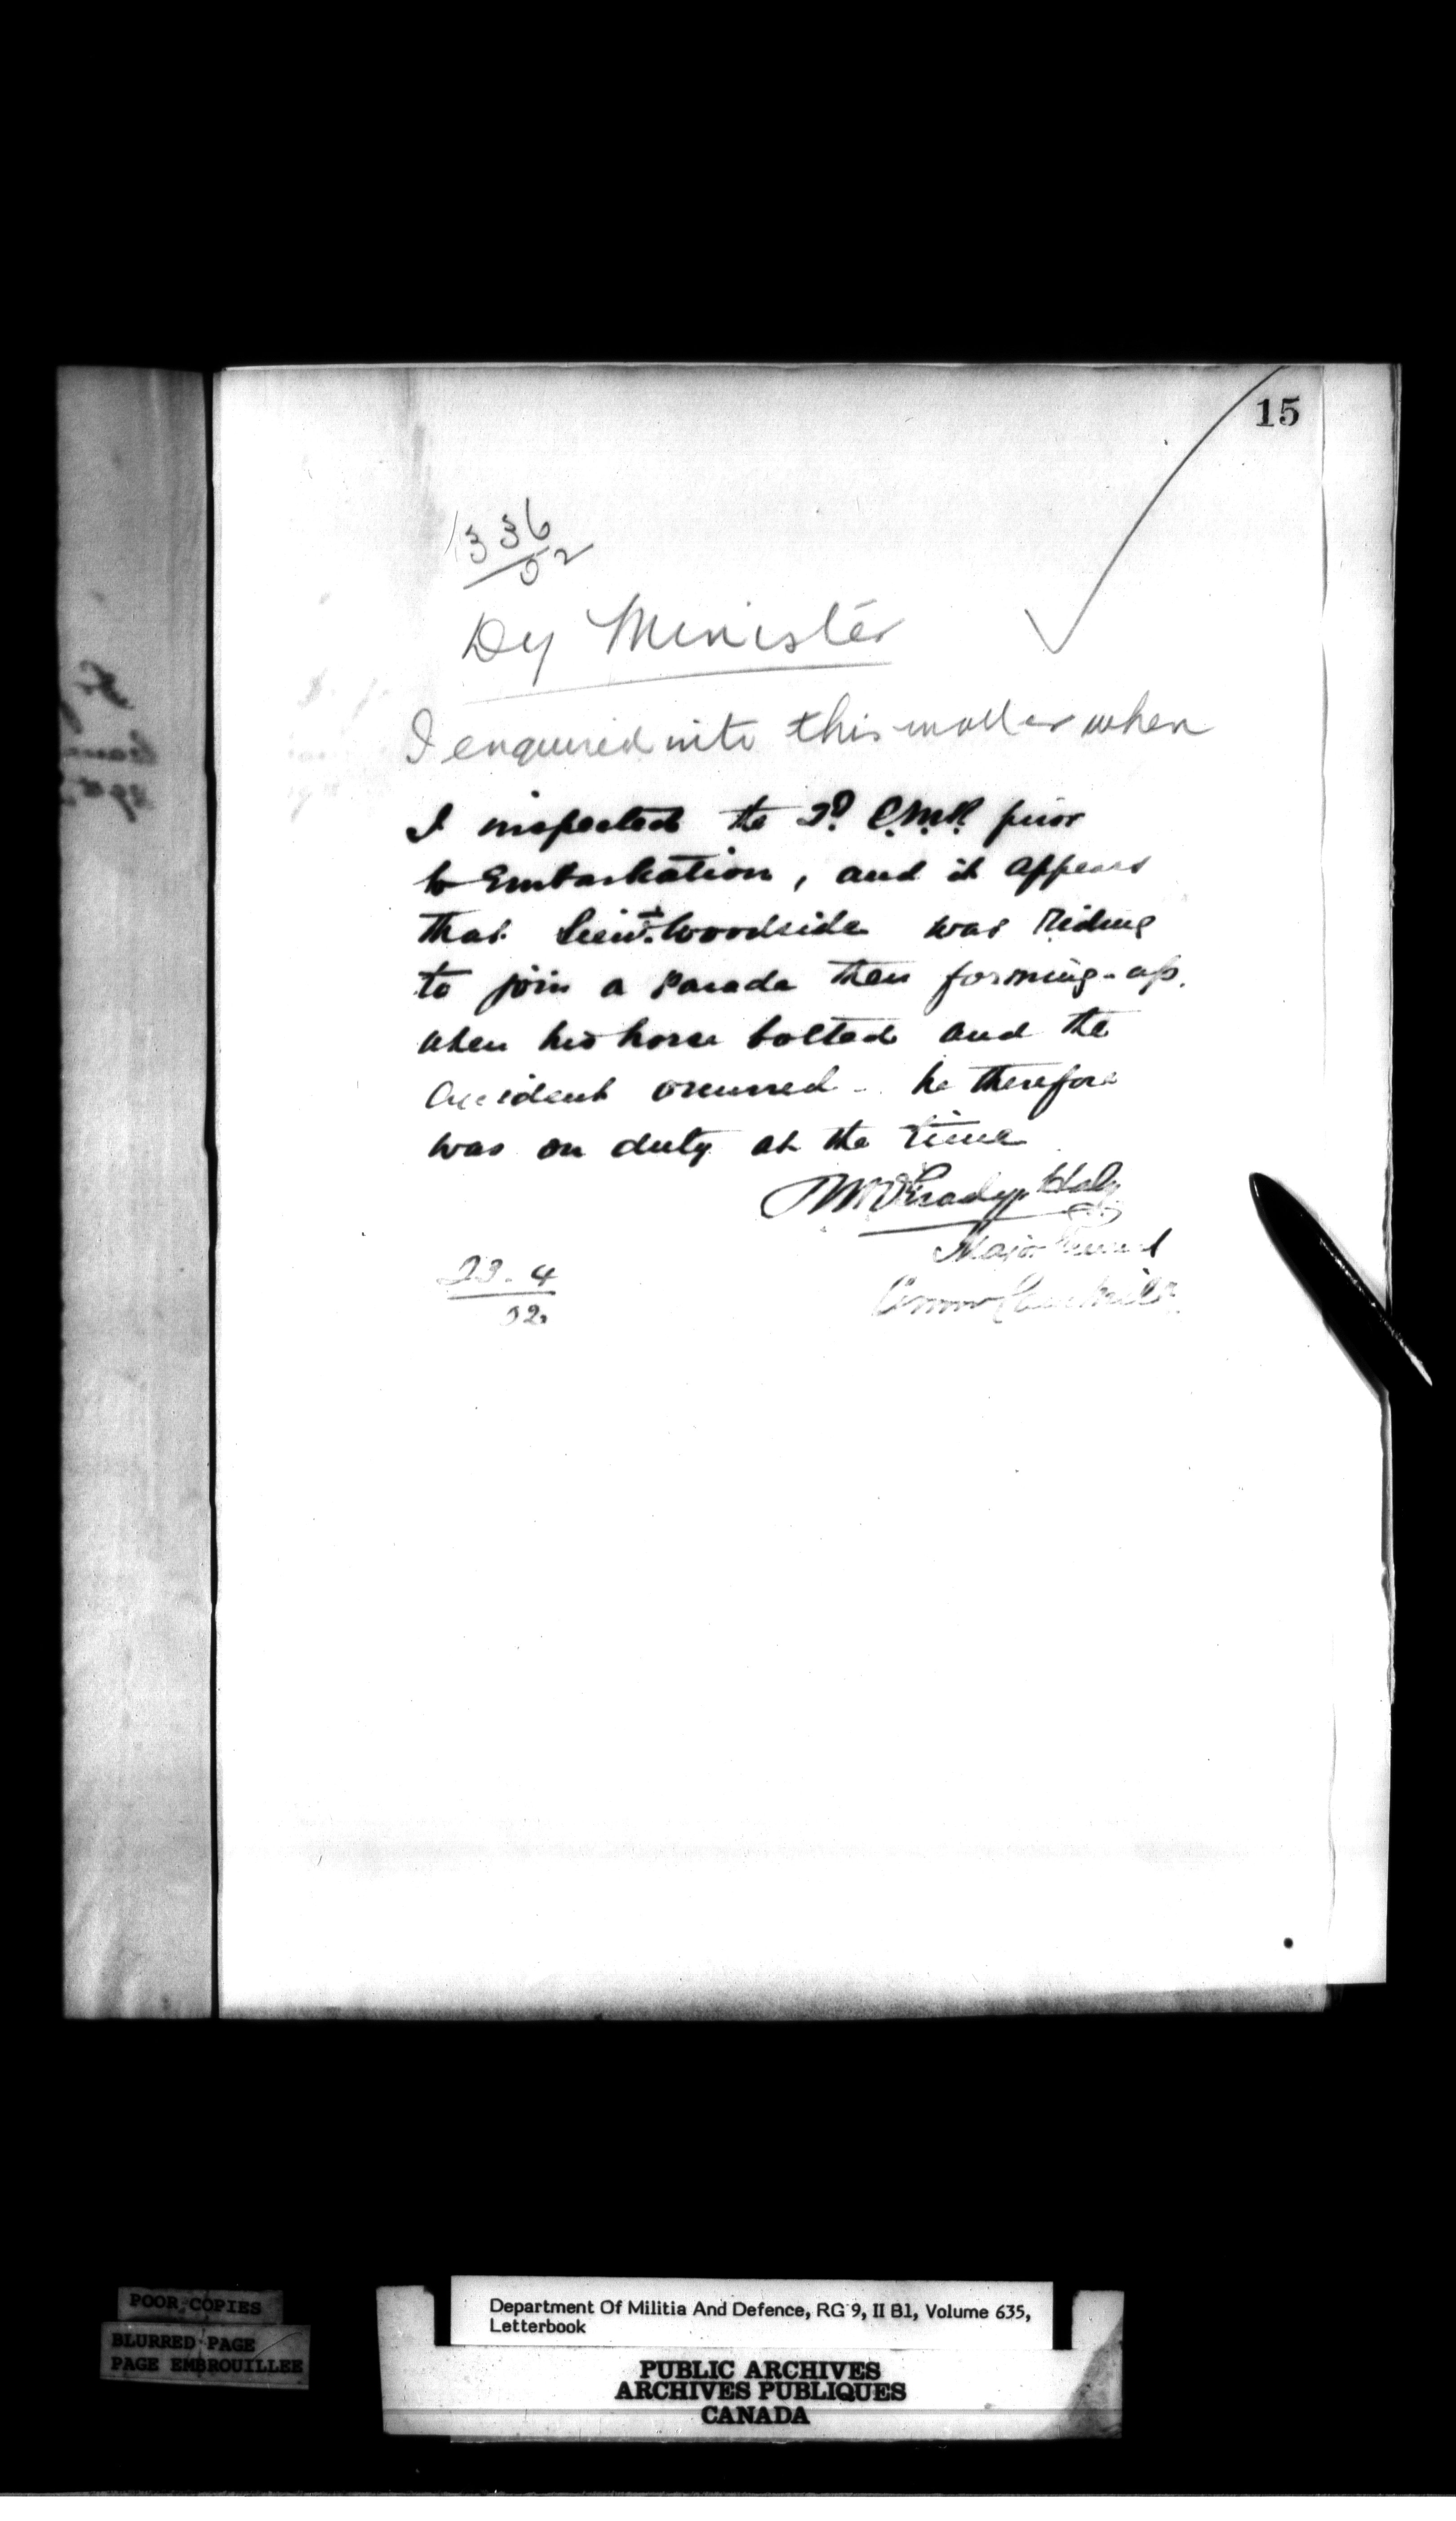 15
1336
02
Dy Minister
I enquired into this matter when
I inspected the 2D C.M.R. prior
to Embarkation, and it appears
that Lieut. Woodside was riding
to join a parade then forming-up.
when his horse bolted and the
accident occurred - he therefore
was on duty at the time
O'Grady Haly
Major General
Comm
23-4
02.
POOR COPIES
BLURRED PAGE
PAGE EMBROUILLEE
Department Of Militia And Defence, RG 9, II B1, Volume 635,
Letterbook
PUBLIC ARCHIVES
ARCHIVES PUBLIQUES
CANADA